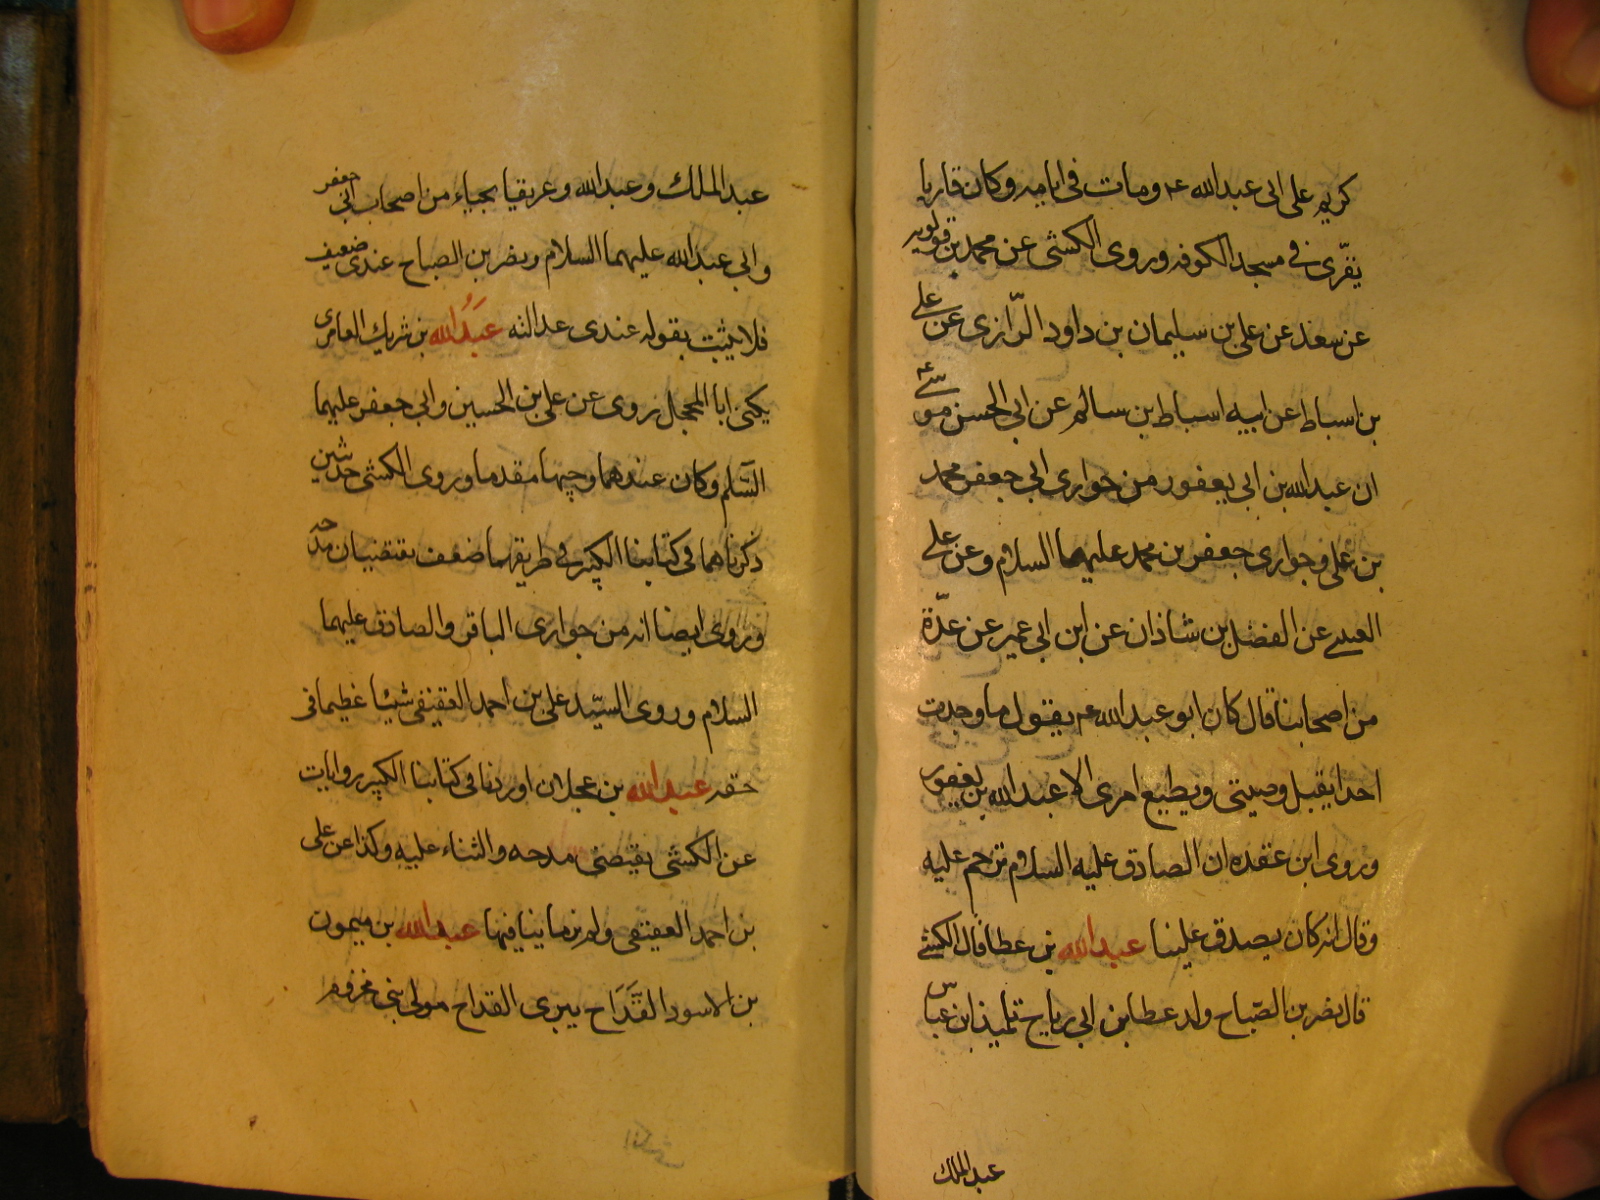 كريم على ابى عبد الله عـه ومات فى ايامه وكان قاريا
يقرى فى مسجد الكوفه وروى الكشى عن محمد بن قولويه
عن سعد عن على بن سليمان بن داود الرّازى عن على
بن اسباط عن ابيه اسباط بن سالم عن ابى الحسن موسى عـه
ان عبد الله بن ابى يعفور من حوارى ابى جعفر محمد
بن على وحوارى جعفر بن محمد عليهما السلام وعن على
العبسى عن الفضل بن شاذان عن ابن ابى عمير عن عدّة
من اصحابنا قال كان ابو عبد الله عـه يقول ما وجدت
احدا يقبل وصيتى ويطيع امرى الا عبد الله بن يعفور
وروى ابن عقده ان الصادق عليه السلام ترحم عليه
وقال انه كان يصدق علينا عبد الله بن عطا قال الكشى
قال نصر بن الصّباح ولد عطا بن ابى رياح تلميذ ابن عباس
عبد الملك
عبد الملك وعبد الله وعريفا نجباء من اصحاب ابى جعفر
وابى عبد الله عليهما السلام ونصر بن الصباح عندى ضعيف
فلا يثبت بقوله عندى عدالته عَبدُ الله بن شريك العامرى
يكنى ابا المحجل روى عن على بن الحسين وابى جعفر عليهما
السّلم وكان عندهما وجيها مقدما وروى الكشى حديثين
ذكرناهما فى كتابنا الكبير فى طريقهما ضعف يقتضيان مدحه
وروى ايضا انه من حوارى الباقر والصادق عليهما
السلام وروى السيّد على بن احمد العقيقى شيئا عظيما فى
حقه عبد الله بن عجلان اوردنا فى كتابنا الكبير روايات
عن الكشى يقتضى مدحه والثناء عليه وكذا عن على
بن احمد العقيقى ولم نر ما ينافيها عبد الله بن ميمون
بن الاسود القَدَّاح يبرى القداح مولى بنى مخزوم